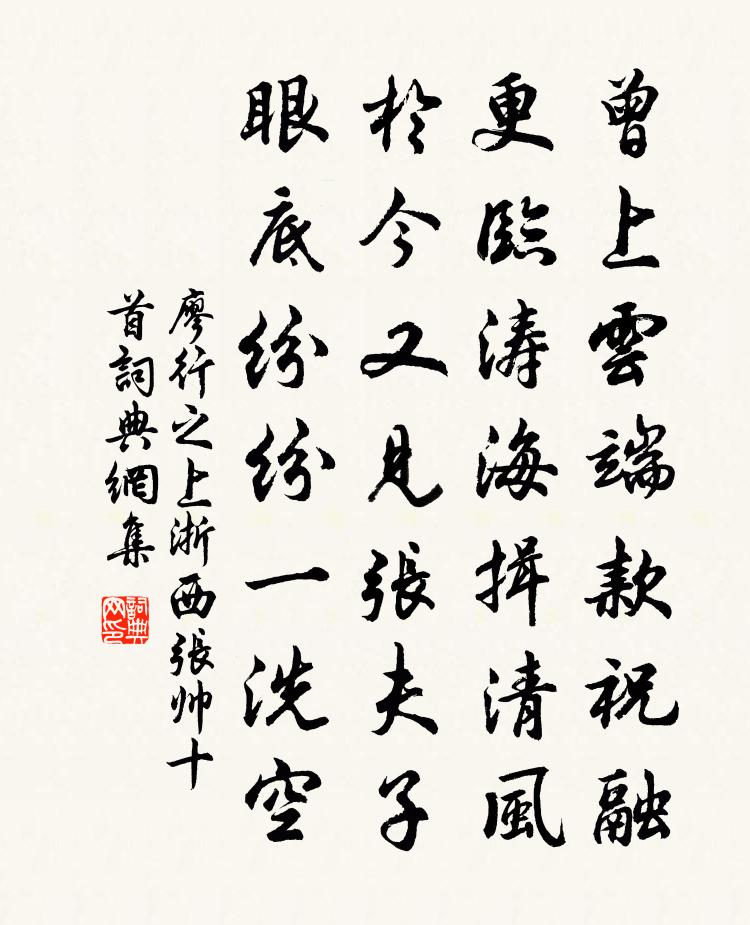 曾上雲端款祝融
更臨濤海揖清風
於今又見張夫子
眼底紛紛一洗空
廖行之上浙西張帅十
首詞典網集
詞典
网印